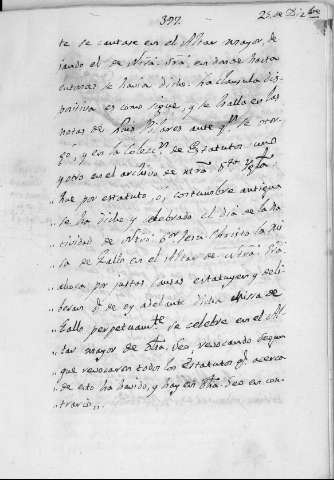 397.
25. de Dizbre
te se cantase en el Altar mayor, de
xando el de Ntrâ. Srâ, en donde hasta
entonzes se havia dicho. ha clausula dis-
positiva es como sigue, y se halla en las
notas de Luis Pilares ante qn. se otor-
gó, y en la Colezn. de Estatutos uno
y otro en el archivo de ntrâ. Sta. Ygla.
"Que por estatuto, ó, costumbre antigua
"se ha dicho y celebrado el dia de la Na
"tividad de Ntrô. Sor. Jesu Christo la mi
"sa de Gallo en el Altar de Ntrâ. Srâ.
"ahora por justas causas estatuyen y deli
"beran qe. de oy adelante dicha Missa de
"Gallo perpetuamte. se celebre en el Al
"tar mayor de dha. Seo, revocando segun
"que revocaron todos los Estatutos qe. acerca
"de esto ha havido, y hay en dha. Seo en con
"trario".